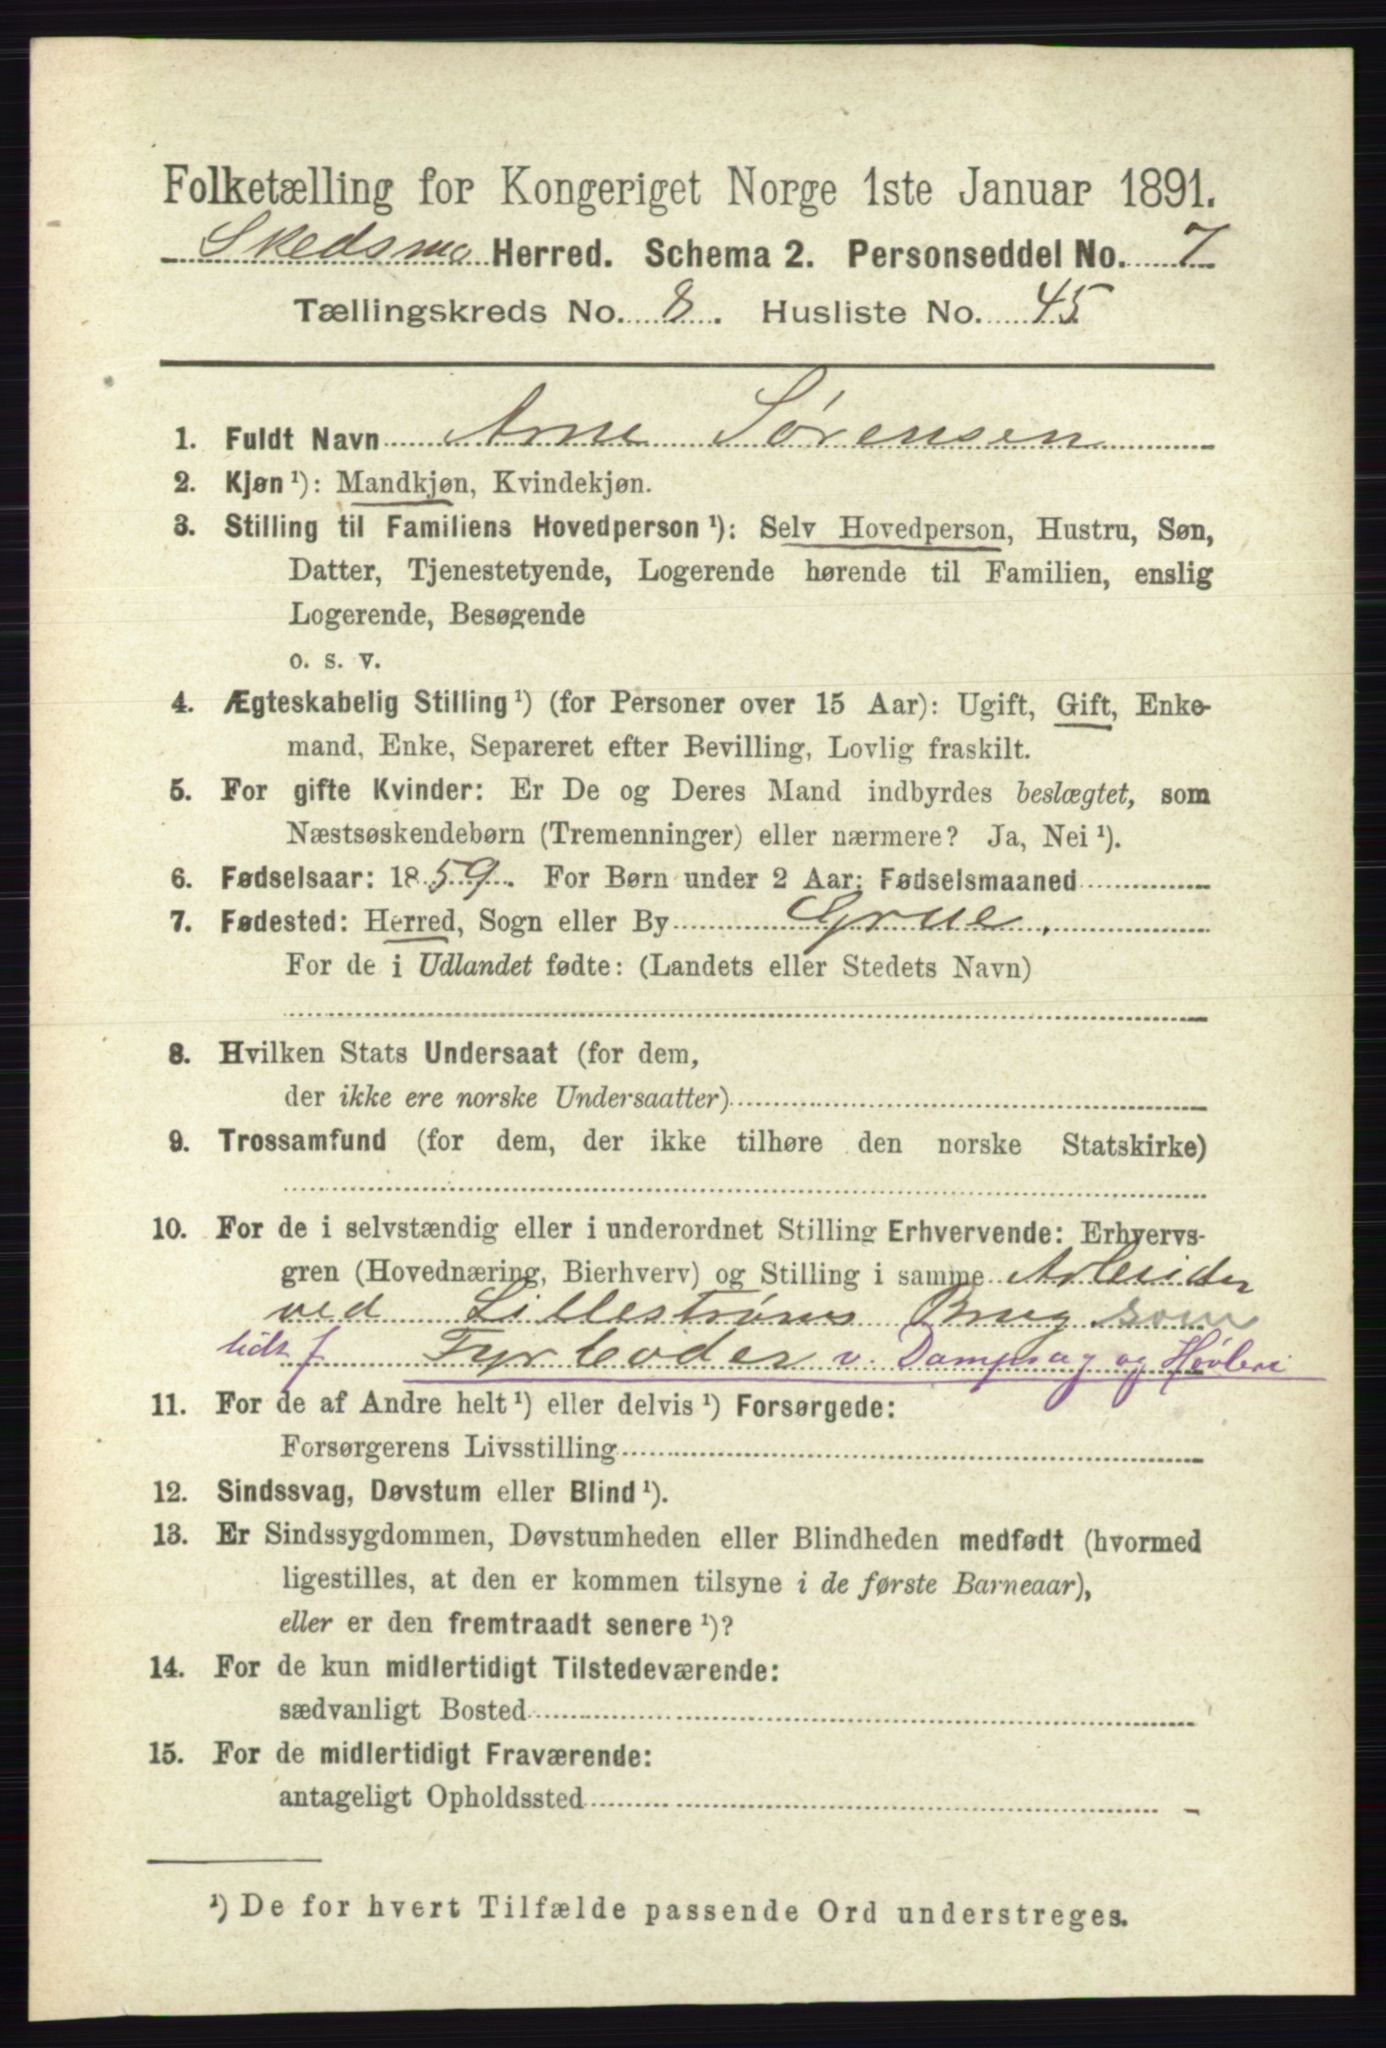 Folketælling for Kongeriget Norge 1ste Januar 1891.
Skedsmo Herred. Schema 2. Personseddel No. 7
Tællingskreds No. 8. Husliste No. 45
1. Fuldt Navn Arne Sørensen
2. Kjøn ¹): Mandkjøn, Kvindekjøn.
3. Stilling til Familiens Hovedperson ¹): Selv Hovedperson, Hustru, Søn,
Datter, Tjenestetyende, Logerende hørende til Familien, enslig
Logerende, Besøgende
o. s. v.
4. Ægteskabelig Stilling ¹) (for Personer over 15 Aar): Ugift, Gift, Enke-
mand, Enke, Separeret efter Bevilling, Lovlig fraskilt.
5. For gifte Kvinder: Er De og Deres Mand indbyrdes beslægtet, som
Næstsøskendebørn (Tremenninger) eller nærmere? Ja, Nei ¹).
6. Fødselsaar: 1859. For Børn under 2 Aar: Fødselsmaaned
7. Fødested: Herred, Sogn eller By Grue.
For de i Udlandet fødte: (Landets eller Stedets Navn)
8. Hvilken Stats Undersaat (for dem,
der ikke ere norske Undersaatter)
9. Trossamfund (for dem, der ikke tilhøre den norske Statskirke)
10. For de i selvstændig eller i underordnet Stilling Erhvervende: Erhvervs-
gren (Hovednæring, Bierhverv) og Stilling i samme Arbeider
ved Lillestrøms Brug som
Fyrbøder v. Dampsag og Høvleri
11. For de af Andre helt ¹) eller delvis ¹) Forsørgede:
Forsørgerens Livsstilling
12. Sindssvag, Døvstum eller Blind ¹).
13. Er Sindssygdommen, Døvstumheden eller Blindheden medfødt (hvormed
ligestilles, at den er kommen tilsyne i de første Barneaar),
eller er den fremtraadt senere ¹)?
14. For de kun midlertidigt Tilstedeværende:
sædvanligt Bosted
15. For de midlertidigt Fraværende:
antageligt Opholdssted
¹) De for hvert Tilfælde passende Ord understreges.